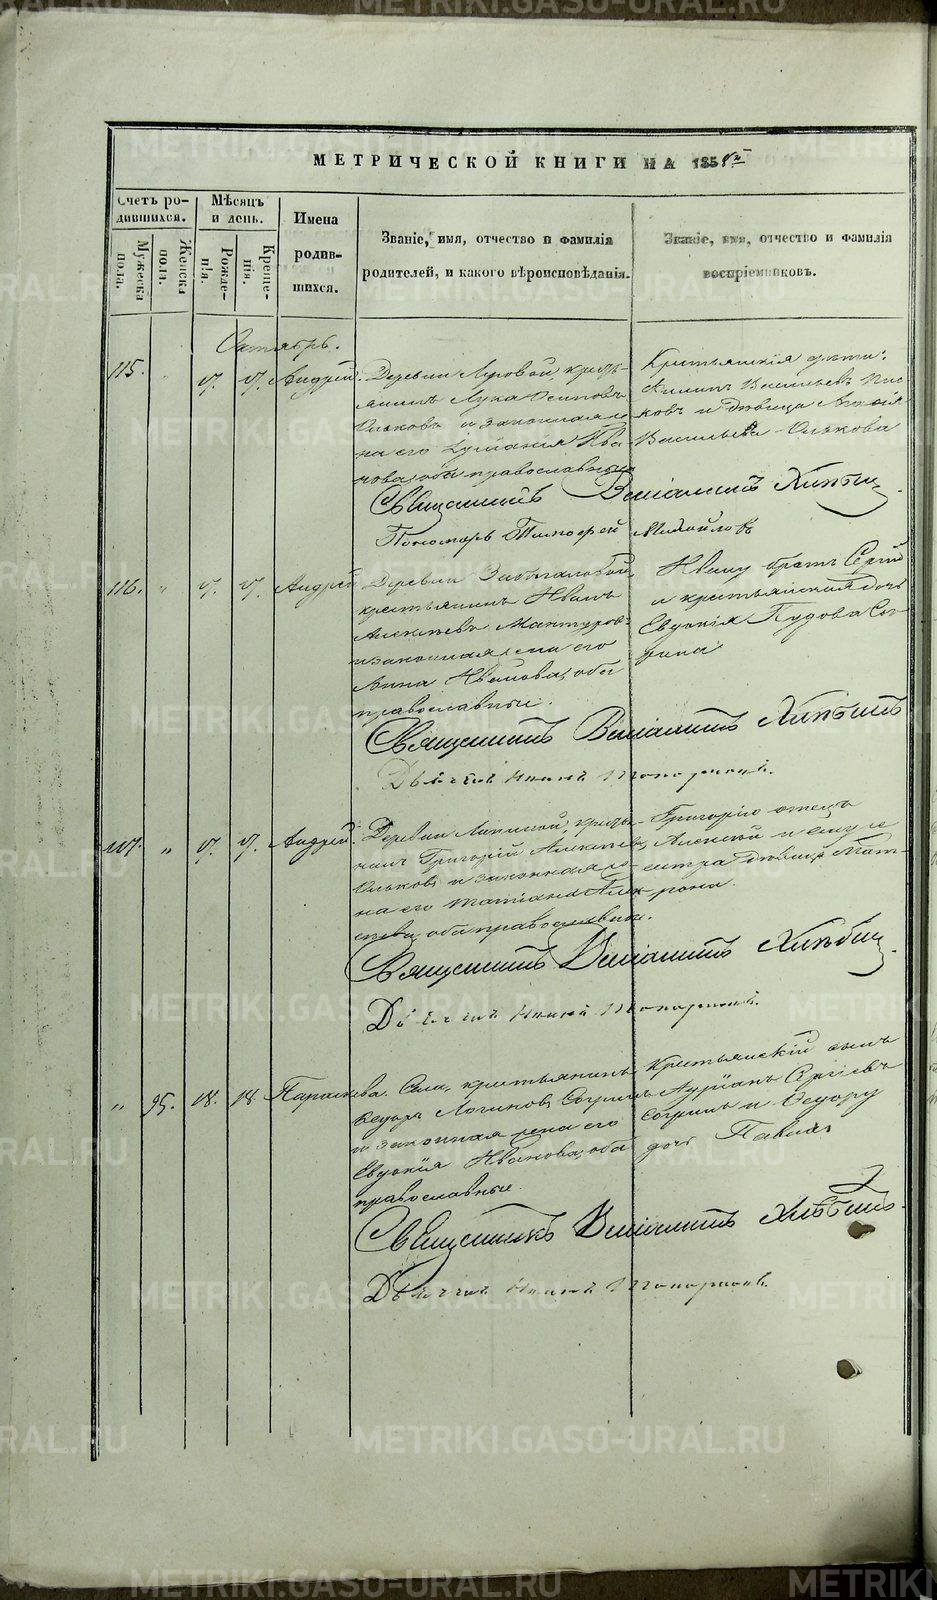 МЕТРИЧЕСКОЙ КНИГИ НА 1858й
Счетъ ро-
дившихся.
Мужеска
пола.
Женска
пола.
Мѣсяцъ
и день.
Рожде-
нія.
Креще-
нія.
Имена
родив-
шихся.
Званіе, имя, отчество и фамилія
родителей, и какого вѣроисповѣданія.
Званіе, имя, отчество и фамилія
воспріемниковъ.
Октябрь.
115. Андрей.
крестья-
янинъ Лука Осиповъ
и законная же
на его Ива
нова, оба православные
Крестьянскія дѣти:
Филипъ Васильевъ
и дѣвица
Васильева
Священникъ Веніаминъ Хлѣбин
Пономарь Тимофей Михайловъ
116. " Андрей
Деревни
крестьянинъ Иванъ
Алексѣевъ Мантуров
и законная жена его
Анна Иванова, оба
православные.
Ивану братъ Сергій
и крестьянская дочь
Евдокія Пудова Сог
рина
Священникъ Веніаминъ Хлѣбинъ
Дьячекъ Иванъ Топорковъ.
117. " Андрей.
Деревни кресть-
нинъ Григорій Алексѣевъ
и законная же
на его Татіана Алек
сѣева, оба православные.
Григорію отецъ
Алексей и ему се
стра дѣвица Мат-
рона.
Священникъ Веніаминъ Хлѣбин.
Дьячекъ Иванъ Топорковъ.
" 95. 18. 18. Параскева.
Села, крестьянинъ
Ѳедоръ Логиновъ Согринъ
и законная жена его
Евдокія Иванова, оба
православные.
Крестьянскій сынъ
Сергіевъ
Согринъ и Ѳедору
дочь Павла
Священникъ Веніаминъ Хлѣбинъ.
Дьячекъ Иванъ Топорковъ.
METRIKI.GASO-URAL.RU